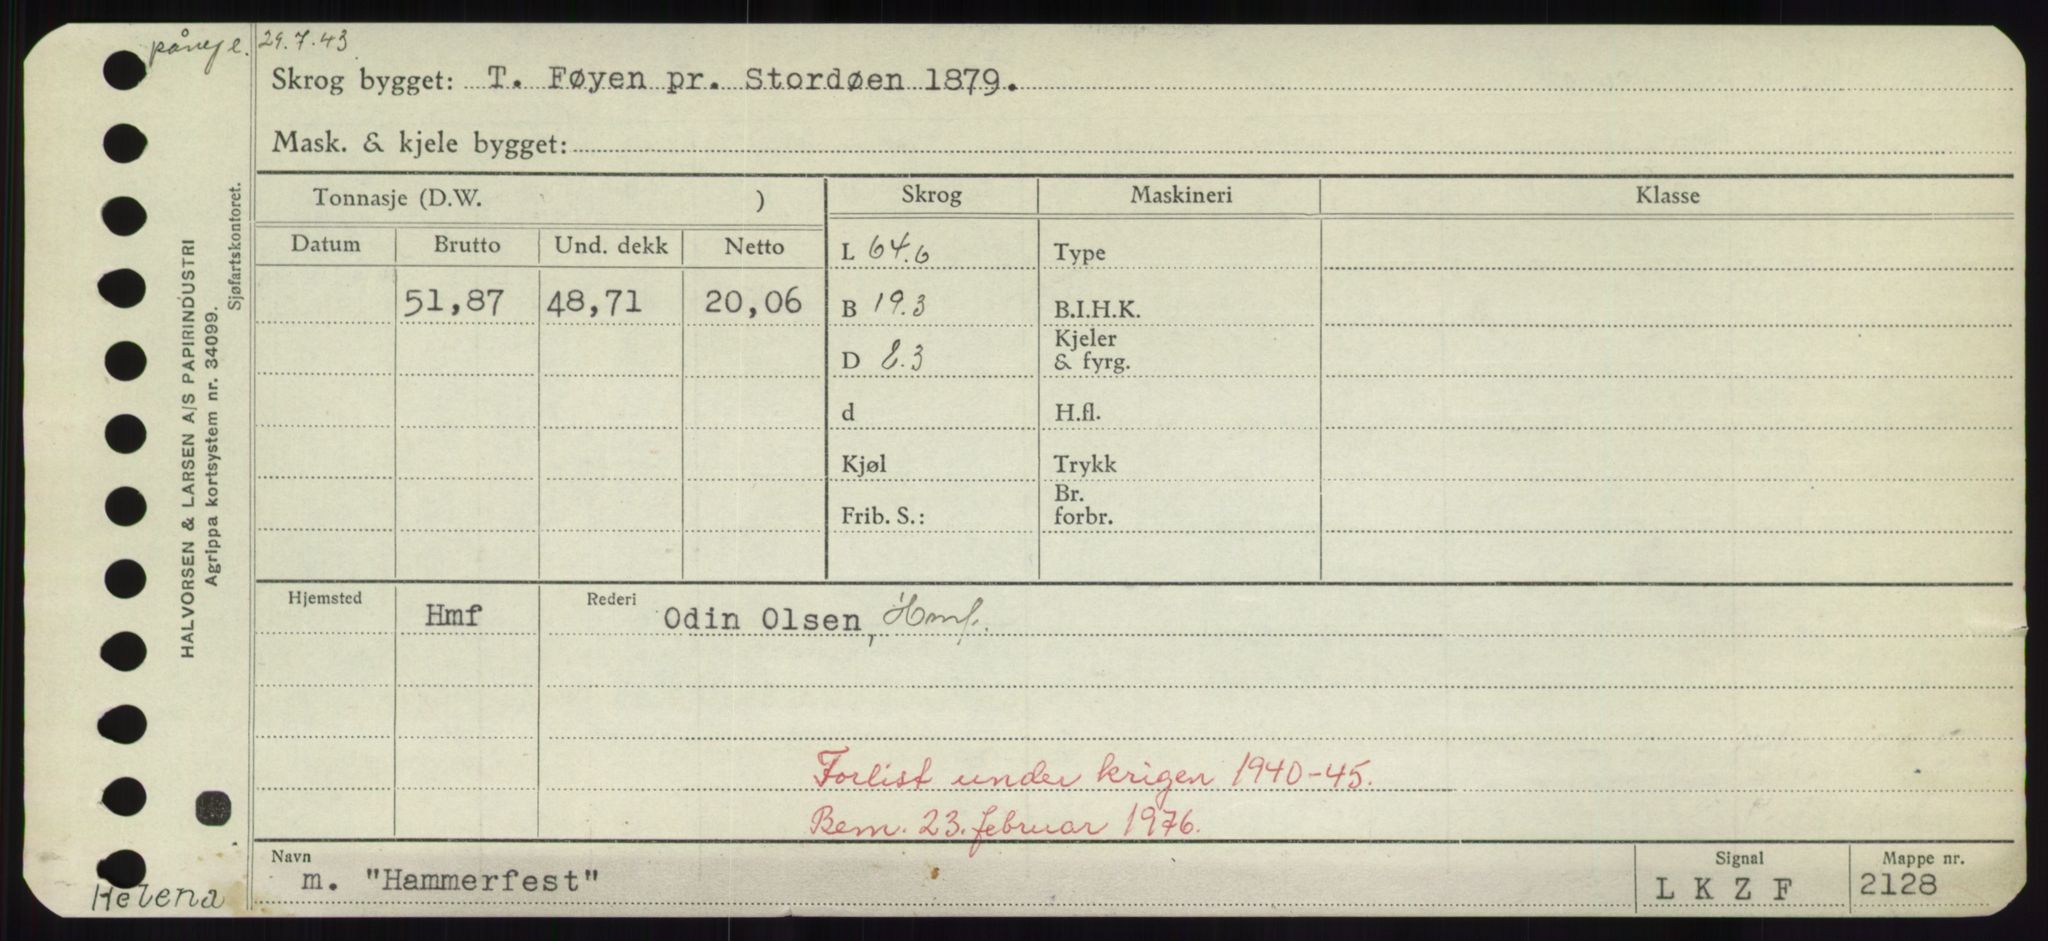 29.7.43
Skrog bygget: T. Føyen pr. Stordøen 1879.
Mask. & kjele bygget:
Tonnasje (D.W. )
Skrog
Maskineri
Klasse
Datum
Brutto
Und. dekk
Netto
L 64.6
Type
51,87
48,71
20,06
B 19.3
B.I.H.K.
D 8.3
Kjeler
& fyrg.
d
H.fl.
Kjøl
Trykk
Frib. S.:
Br.
forbr.
Hjemsted
Hmf
Rederi
Odin Olsen, Hmf.
Forlist under krigen 1940-45.
Bem. 23. februar 1976.
Navn
m. "Hammerfest"
Signal
L K Z F
Mappe nr.
2128
Helena
HALVORSEN & LARSEN A/S PAPIRINDUSTRI
Agrippa kortsystem nr. 34099.
Sjøfartskontoret.